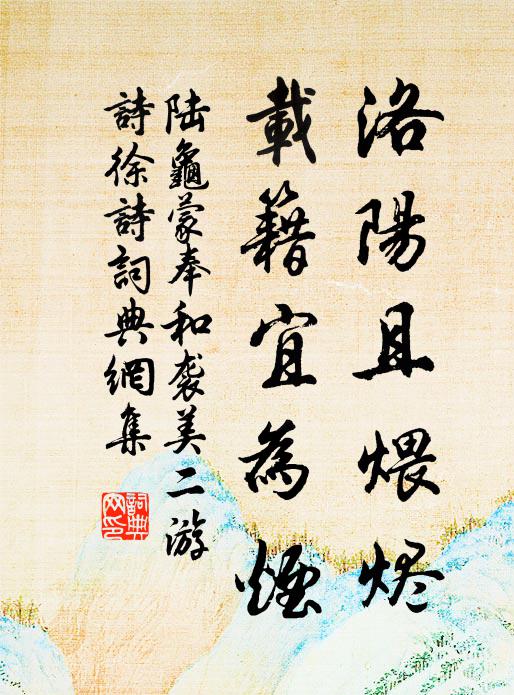 洛陽且煨烬
載籍宜為煙
陆龜蒙奉和袭美二游
詩徐詩詞典網集
詞典
网印